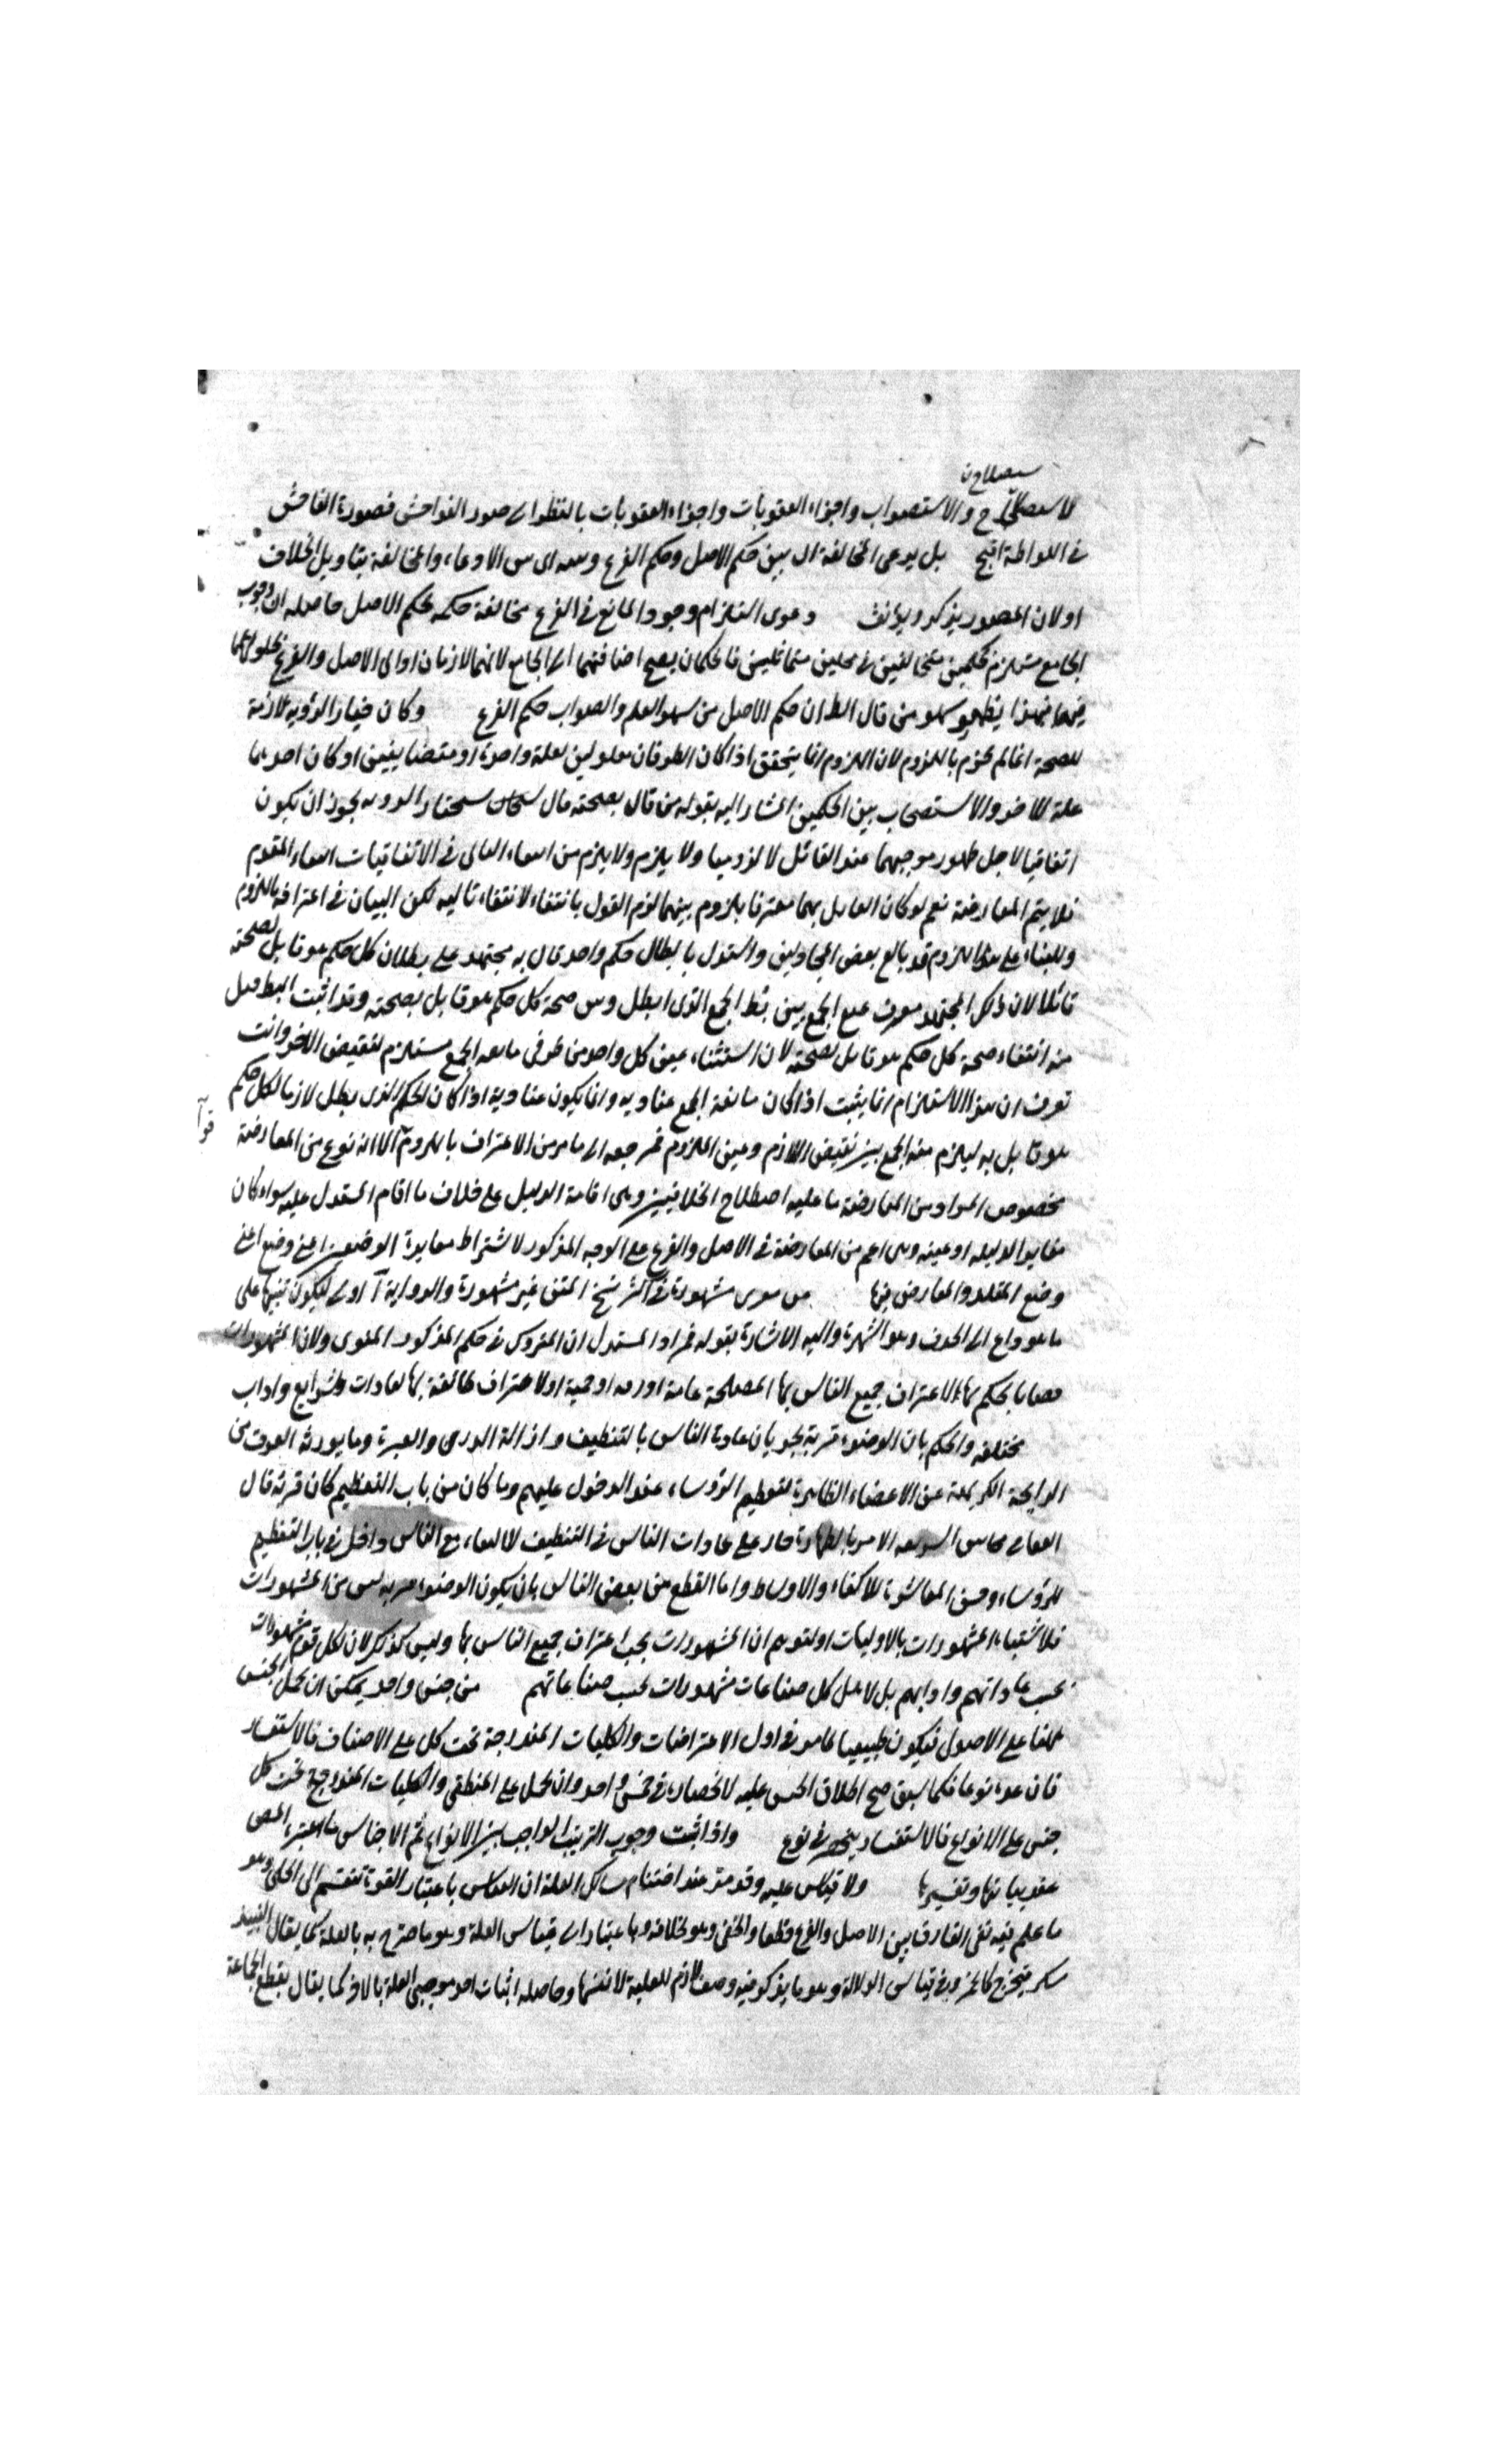 لاستصلاح والاستصواب واجزاء العقوبات واجزاء العقوبات بالنظر الى صدور الفواحش فصورة الفاحش
في اللواطة اقبح بل يدعى المخالفة بين حكم الاصل وحكم الفرع من الادعاء والمخالفة بتاويل الخلاف
او لان المصدر يذكر ويؤنث دعوى التزام وجود المانع في الفرع مخالفة حكمه لحكم الاصل حاصله ان وجوب
الجامع مستلزم لحكمين متخالفين في محلين متماثلين فالحكمان يصح اضافتهما الى الجامع لانهما لازمان اوالى الاصل والفرع
فيهما فبهذا يظهر سهو من قال ان حكم الاصل من سهو القلم والصواب حكم الفرع وكان خيار الرؤية لازمة
للصحة انما لم يجزم باللزوم لان اللزوم انما يتحقق اذا كان الطرفان معلولين لعلة واحدة او متضايفين او كان احدهما
علة للاخر والاستصحاب بين الحكمين المشار اليه بقوله من قال بصحته قال يجوز ان يكون
اتفاقيا لاجل ظهور موجبهما عند القائل لا لزوميا ولا يلزم من انتفاء التالى في الاتفاقيات انتفاء المقدم
فلا يتم المعارضة نعم لو كان القائل بهما معترفا بلزوم بينهما لزم القول بانتفائه لانتفاء تاليه لكن البيان في اعترافه باللزوم
وللبناء على هذا اللزوم قد بالغ بعض المجادلين واستدل بابطال حكم واحد قال به مجتهد على بطلان كل حكم هو قابل بصحته
قائلا لان ذلك المجتهد معترف بمنع الجمع بين الحكم الذى ابطل وبين صحة كل حكم هو قابل بصحته وقد اثبت المبطل
منه انتفاء صحة كل حكم هو قابل بصحته لان استثناء عين كل واحد من طرفى مانعة الجمع مستلزم لنقيض الاخر وانت
تعرف ان هذا الاستلزام انما يثبت اذا كان مانعة الجمع عنادية وانما يكون عنادية اذا كان الحكم الذى يبطل لازما لكل حكم
هو قابل به ليلزم منه الجمع بين نقيض اللازم وعين الملزوم فمرجعه الى ما مر من الاعتراف باللزوم الا انه نوع من المعارضة
مخصوص المراد من المعارضة ما عليه اصطلاح الخلافيين وهى اقامة الدليل على خلاف ما اقام المستدل عليه سواء كان
مغايرا لدليله او عينه وهى اعم من المعارضة في الاصل والفرع على الوجه المذكور لاشتراط مغايرة الوضعين اعنى وضع
وضع المعلل والمعارض فيها مشهورة في اكثر نسخ المتن غير مشهورة والرواية اولى ليكون تنبيها على
ما هو داع الى الحذف وهو الشهرة واليه الاشارة بقوله فمراد المستدل ان المتروك في حكم المذكور المنوى ولان المشهورات
قضايا يحكم بها لاعتراف جميع الناس بها لمصلحة عامة او رقة او حمية او لاعتراف طائفة بها لعادات وشرايع واداب
مختلفة والحكم بان الوضوء قربة بجريان عادة الناس بالتنظيف وازالة الدرن والغبرة وما يورثه العرق من
الرايحة الكريهة عن الاعضاء الظاهرة لتعظيم الرؤساء عند الدخول عليهم وما كان من باب التعظيم كان قربة قال
محاسن الشريعة الامر بالطهارة جار على عادات الناس في التنظيف مع الناس داخل في باب التعظيم
للرؤساء وحسن المعاشرة للاكفاء والاوساط واما القطع من بعض الناس بان يكون الوضوء قربة ليس من المشهورات
فلاشتباه المشهورات بالاوليات او لتوهم ان المشهورات يجب اعتراف جميع الناس بها وليس كذلك لان لكل قوم مشهورات
بحسب عاداتهم وادابهم بل لاهل كل صناعات مشهورات بحسب صناعاتهم من جنس واحد يمكن ان يحمل الجنس
ههنا على الاصول فيكون طبيعيا كما مر في اول الاعتراضات والكليات المندرجة تحت كل على الاصناف فالاستفسار
فان عد نوعا فكما سبق صح اطلاق الجنس عليه لانحصاره في جنس واحد وان يحمل على المنطقى والكليات المندرجة تحت كل
جنس على الانواع فالاستفسار ينحصر في نوع واذا ثبت وجوب الترتيب الواجب بين الانواع ثم الاجناس
عند بيانها وتفسيرها ولا قياس عليه وقد مر عند اختتام مسالك العلة ان القياس باعتبار القوة ينقسم الى الجلى وهو
ما علم فيه نفى الفارق بين الاصل والفرع قطعا والخفى وهو بخلافه وباعتبار الى قياس العلة وهو ما صرح به بالعلة كما يقال النبيذ
مسكر فيحرم كالخمر وفي قياس الدلالة وهو ما يذكر فيه وصف لازم للعلية لا نفسها وحاصله اثبات احد موجبى العلة بالاخر كما يقال بقطع الجماعة